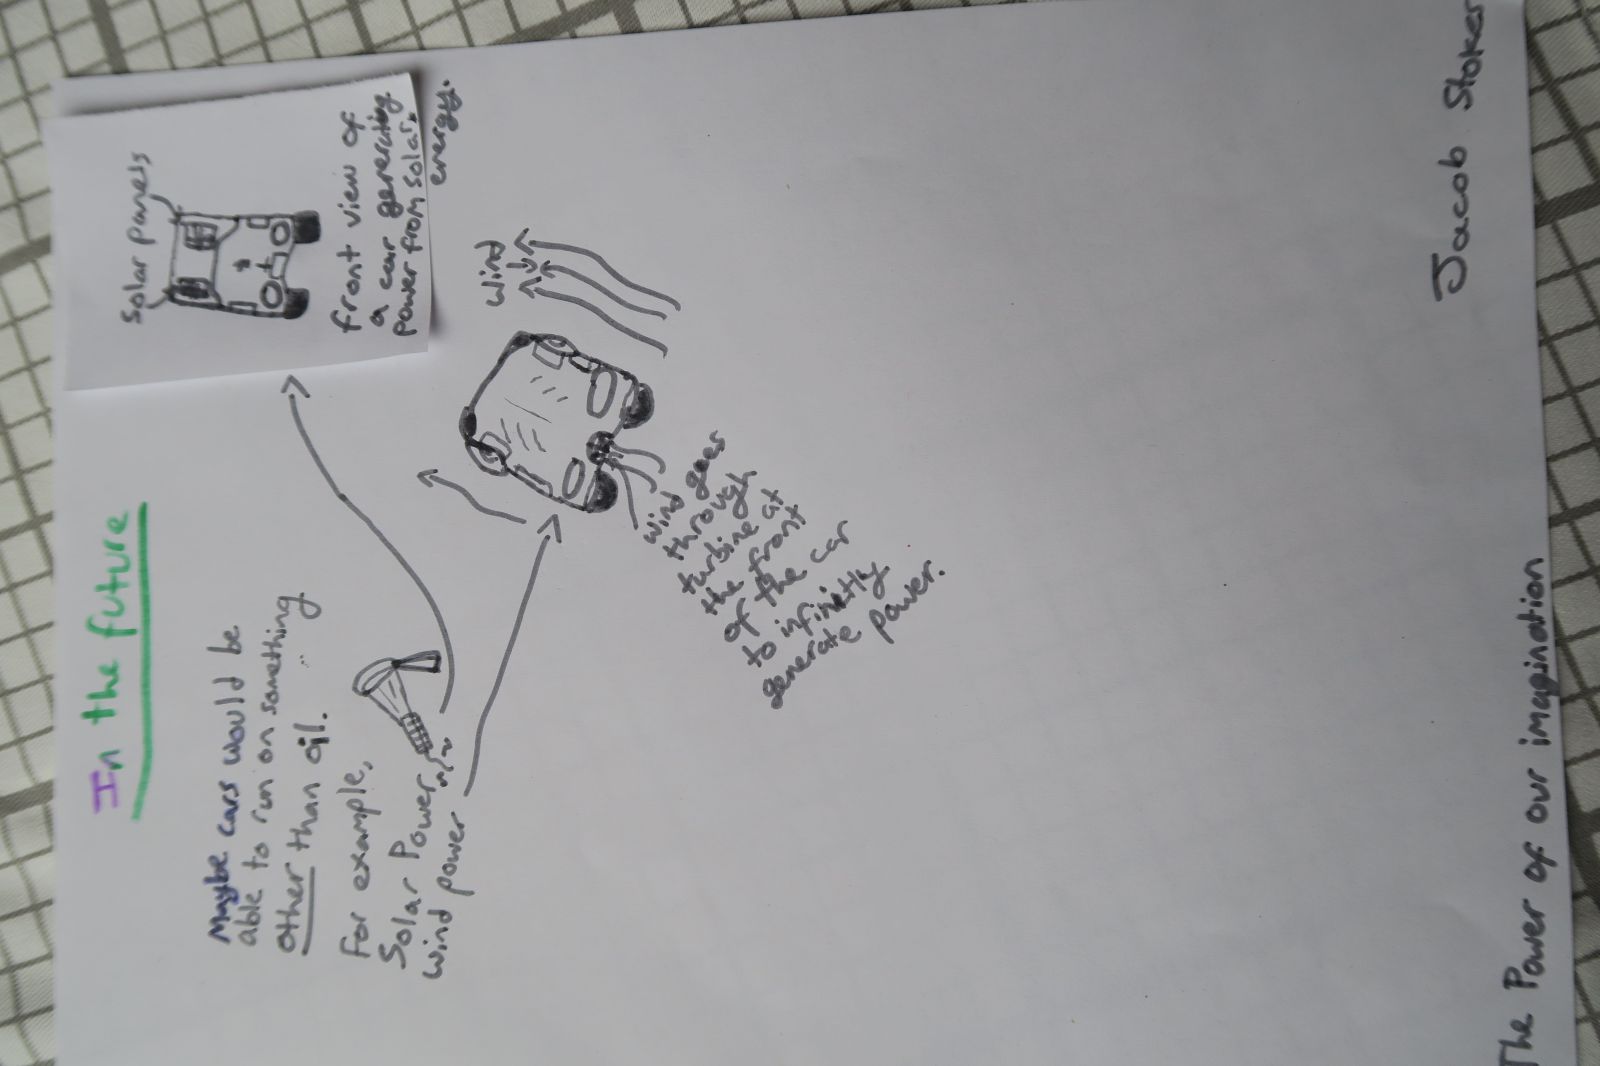 In the future
Maybe cars would be
able to run on something
other than oil.
For example,
Solar Power,
wind power
Solar panels
front view of
a car generating
power from solar
energy.
wind
wind goes
through
turbine at
the front
of the car
to infinitly
generate power.
Jacob Stoker
The Power of our imagination